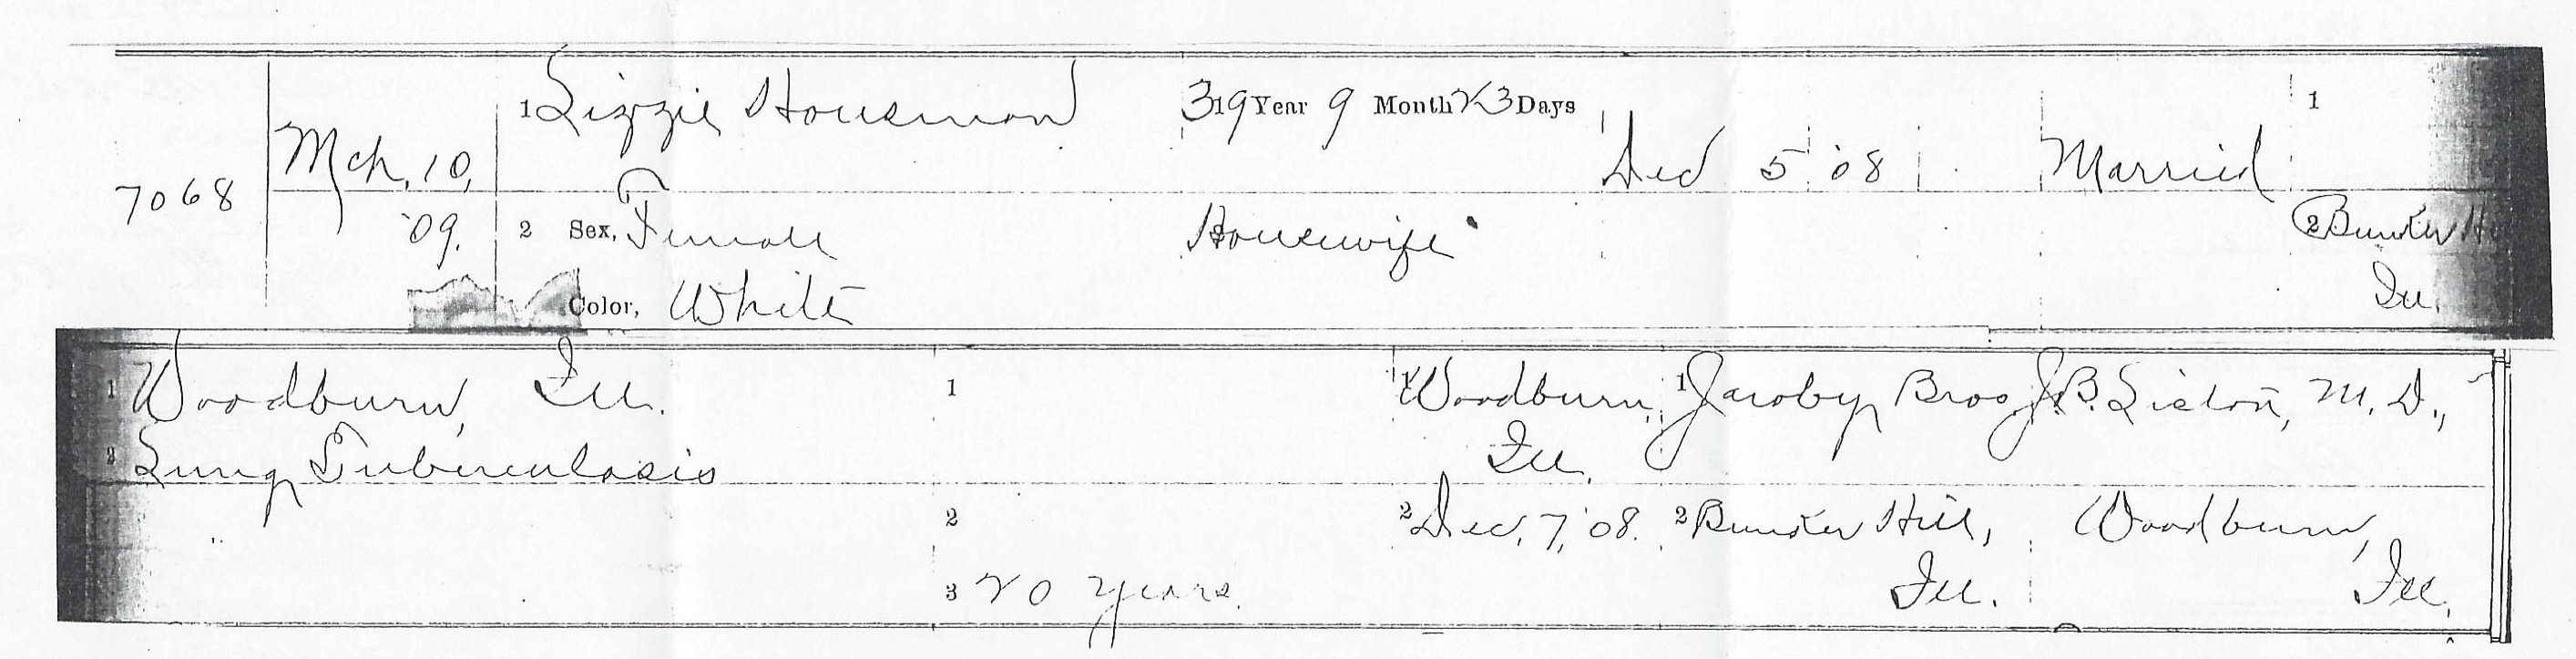 1 Lizzie Houseman 39 Year 9 Month 23 Days 1
7068 Mch, 10, Dec 5 '08 Married
'09. 2 Sex, Female Housewife 2 Bunker Hi
Color, White Ill.
1 Woodburn, Ill. 1 1 Woodburn, 1 Jacoby Bros. J.B. Liston, M.D.,
2 Lung Tuberculosis Ill.
2 2 Dec, 7, '08. 2 Bunker Hill, Woodburn,
3 20 years. Ill. Ill.